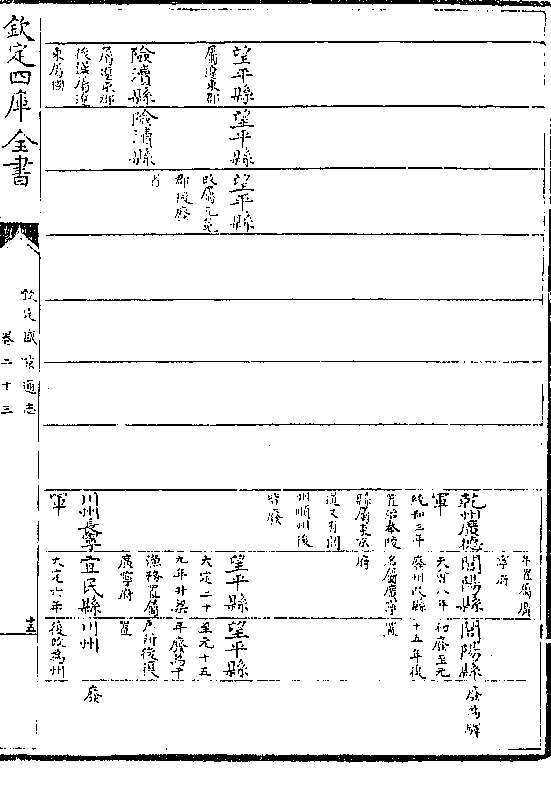 望平縣
屬遼東郡
險瀆縣
屬遼東郡
後漢屬遼
東屬國
望平縣
險瀆縣
望平縣
改屬元菟
郡後廢
省
乾州廣德
軍
統和三年
置治奉陵
縣屬東京
道又有閭
州順州後
皆廢
川州長寧
軍
年置屬廣
寧府
閭陽縣
天會八年
廢州改縣
名屬廣寧
府
望平縣
大定二十
九年升梁
漁務置屬
廣寧府
宜民縣
大定六年
閭陽縣
初廢至元
十五年復
置
望平縣
至元十五
年廢為千
戶所後復
置
川州
後改為州
廢為驛
廢
欽定四庫全書
欽定盛京通志
卷二十三